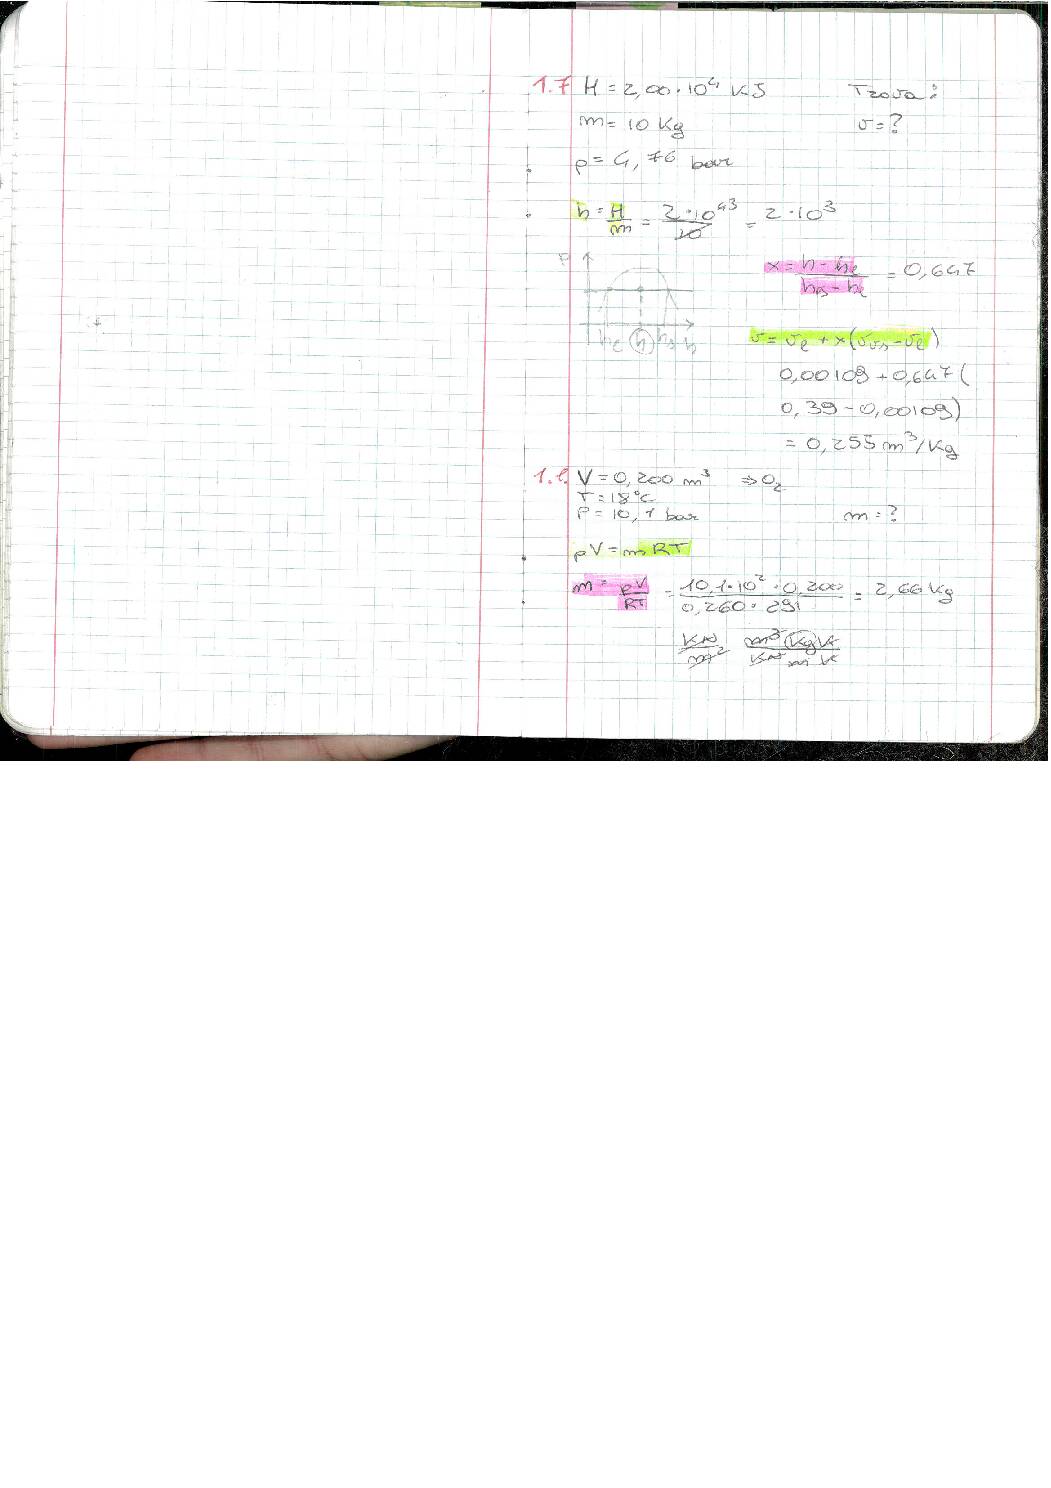 1.7 H = 2,00·10⁴ KJ Trova:
m = 10 Kg v = ?
p = 4,76 bar
h = H/m = 2·10⁴³/10 = 2·10³
x = h - hₑ / hᵥₛ - hₑ = 0,647
P
v = vₑ + x(vᵥₛ - vₑ)
hₑ h hₛ h
0,00109 + 0,647 (
0,39 - 0,00109)
= 0,255 m³/Kg
V = 0,200 m³ ⇒ O₂
T = 18°C
P = 10,1 bar m = ?
pV = m RT
m = pV/RT = 10,1·10²·0,200 / 0,260·291 = 2,66 Kg
KN/m² m³ Kg K / KN m K